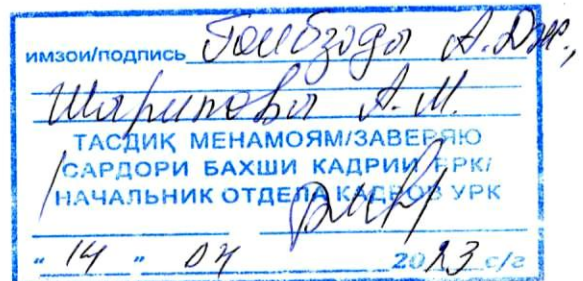 имзои/подпись Гоибзода А.Дж.,
Шарипова А.М.
ТАСДИҚ МЕНАМОЯМ/ЗАВЕРЯЮ
САРДОРИ БАХШИ КАДРИИ БРК/
НАЧАЛЬНИК ОТДЕЛА КАДРОВ УРК
"14" 04 2023 с/г